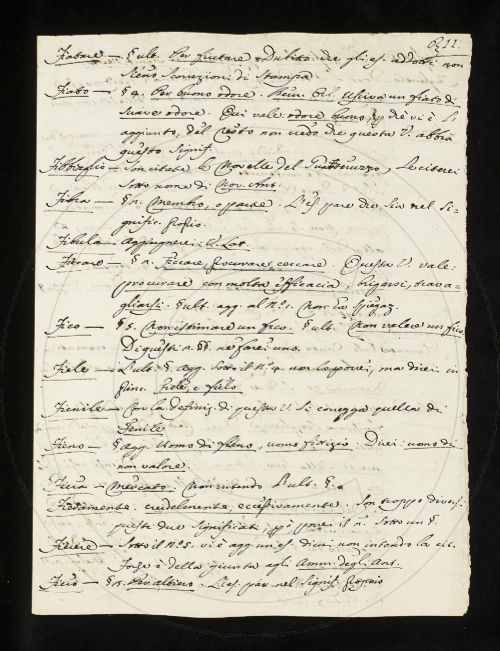 6211.
Fiatare — § ult. Per fiutare. Dubito che gli es. addotti non
sieno scorrezioni di stampa
Fiato — § 4. Per buono odore. Usciva un fiato di
suave odore. Qui vale odore buono, p che vi è l'
aggiunto, del resto non credo che questa V. abbia
questo signif.
Fibbiaglio — Son citate le Novelle del , le citerei
sotto nome di Nov. Ant.
Fibra — § n. Membro, o parte. L'es. pare che sia nel si-
gnific. proprio.
Fibula — Aggiugnerei: V. Lat.
Ficcare — § n. Ficcare, procurare, cercare. Questa V. vale:
procurare con molta efficacia, brigarsi, trava-
gliarsi. § ult. agg. al N.° 1. Non la spiegaz.
Fico — § 5. Non istimare un fico. § ult. Non valere un fico.
Di questi n. §§. ne farei uno.
Fiele — L'ult. § agg. sotto il N.° 4. non lo porrei, ma direi in
fine. Fiele, e fielo
Fienile — Con la definiz. di questa V. si corregga quella di
Fenile
Fieno — § agg. Uomo di fieno, uomo fittizio. Direi: uomo di
non valore.
Fiera — Mercato. Non intendo l'ult. §.
Fieramente. crudelmente, eccessivamente. Son troppo diversi
questi due significati, p ò porrei il n. sotto un §.
Fiere — Sotto il N.° 5. vi è agg. un es. direi non intendo la cit.
forse è della giunta agli Amm. degli Ant.
Fiero — § n. Per altiero. L'es. par nel signif. proprio